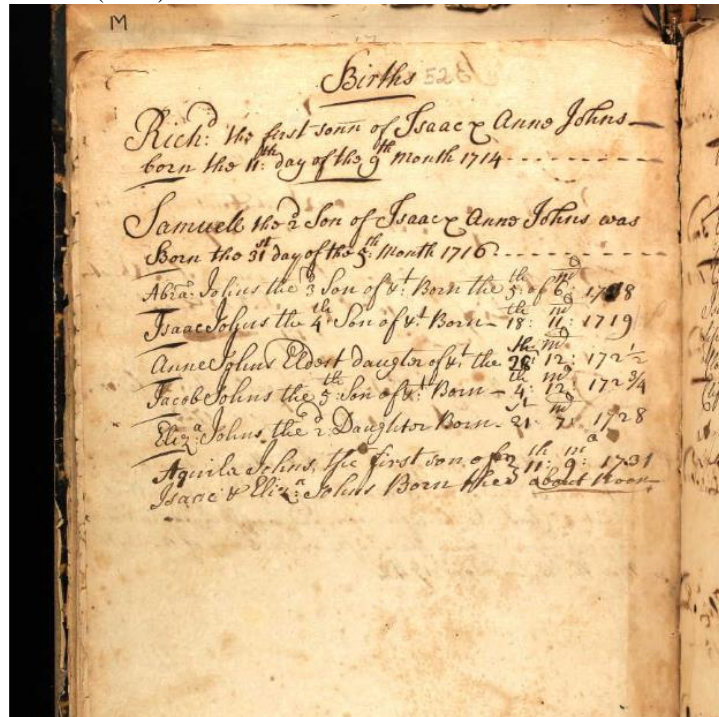 M
Births 526
Rich.d the first sonn of Isaac & Anne Johns
born the 11:th day of the 9th Month 1714
Samuell the 2d Son of Isaac & Anne Johns was
Born the 31st day of the 5:th Month 1716
Abra: Johns the 3d Son of &t. Born the 5:th of 6:mo 1718
Isaac Johns the 4th Son of &t Born 18:th 11:mo 1719
Anne Johns Eldest daugter of &t. the 28:th 12:mo 172½
Jacob Johns the 5:th Son of &t: Born 4:th 12:mo 172¾
Eliz.a Johns the 2d: Daughter Born 21:st 7:mo 1728
Aquila Johns, the first son of 11:th 9:mo 1731
Isaac & Eliz:a Johns Born the about Noon